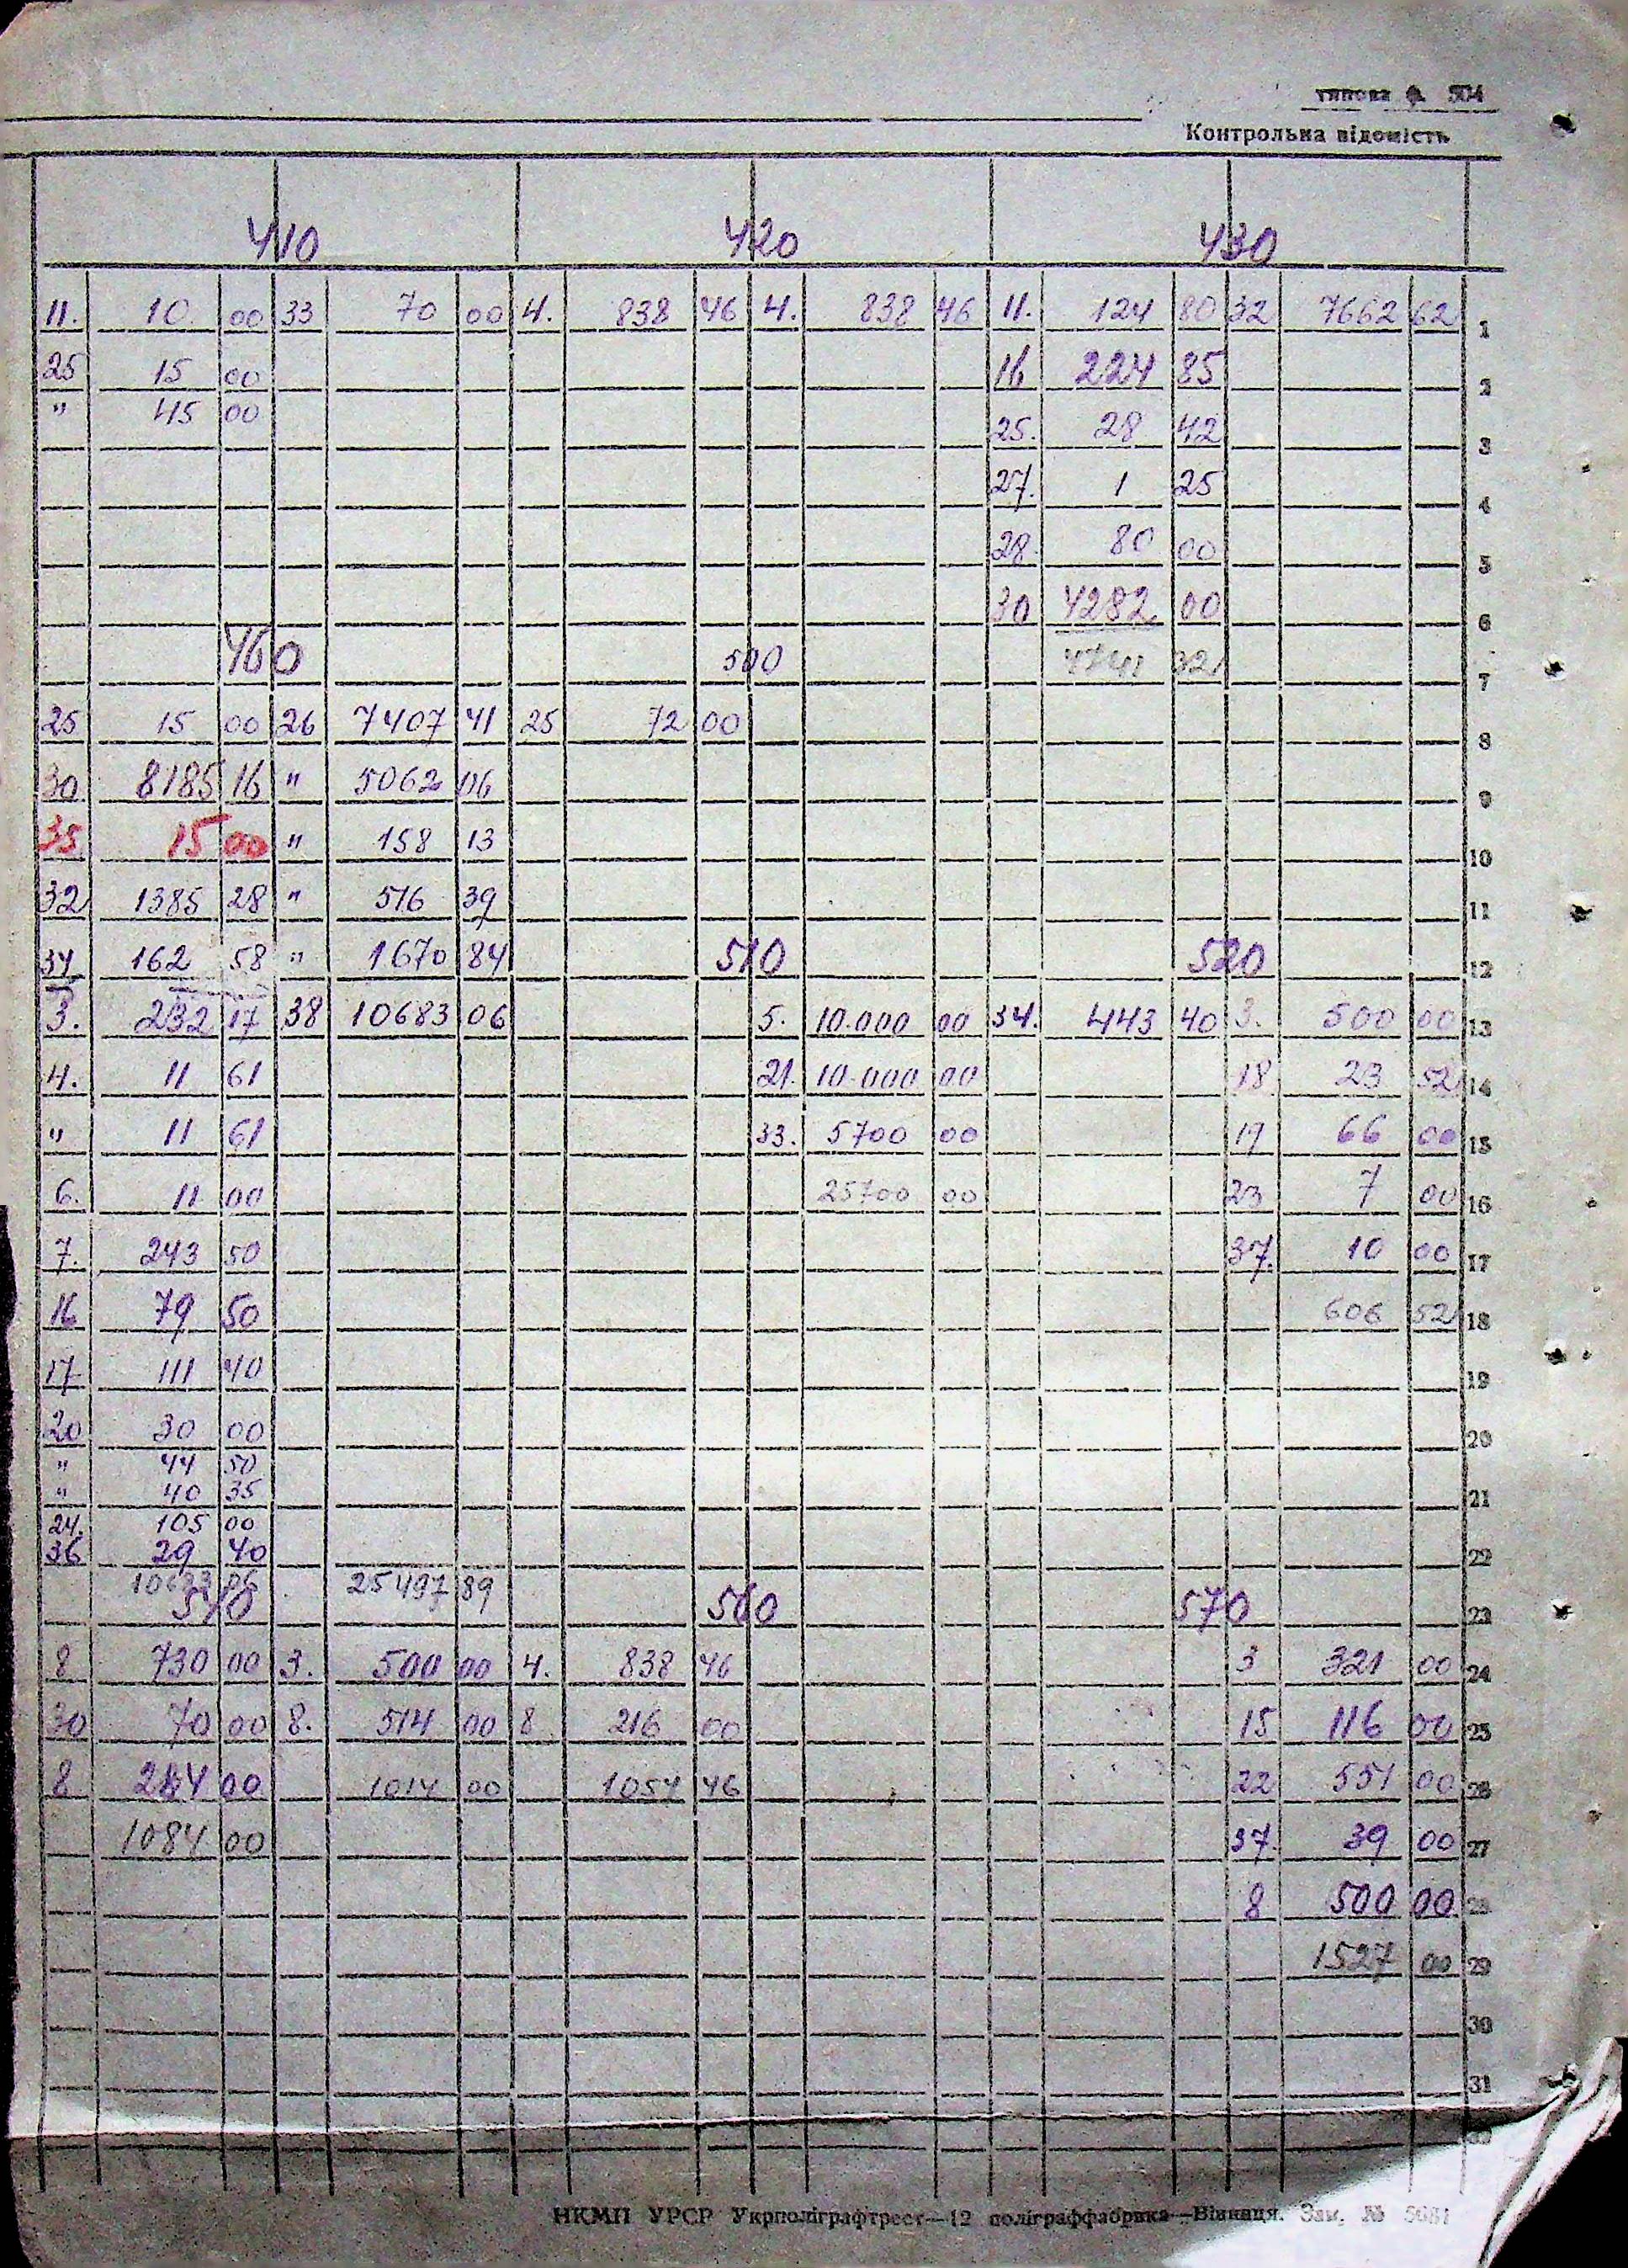 типова ф. 504
Контрольна відомість
410 420 430
11. 10 00 33 70 00 4. 838 46 4. 838 46 11. 124 80 32 7662 62 1
25 15 00 16 224 85 2
" 45 00 25. 28 42 3
27. 1 25 4
28. 80 00 5
30 4282 00 6
460 500 4741 32 7
25 15 00 26 7407 41 25 72 00 8
30 8185 16 " 5062 06 9
35 15 00 " 158 13 10
32 1385 28 " 516 39 11
34 162 58 " 1670 84 510 520 12
3. 232 17 38 10683 06 5. 10.000 00 34. 443 40 3. 500 00 13
4. 11 61 21. 10.000 00 18 23 52 14
" 11 61 33. 5700 00 19 66 00 15
6. 11 00 25700 00 23 7 00 16
7. 243 50 37. 10 00 17
16 79 50 606 52 18
17 111 40 19
20 30 00 20
" 44 50
" 40 35 21
24. 105 00
36 29 40 22
10683 06 25497 89
540 560 570 23
8 730 00 3. 500 00 4. 838 46 3 321 00 24
30 70 00 8. 514 00 8 216 00 15 116 00 25
8 284 00 1014 00 1054 46 22 551 00 26
1084 00 37. 39 00 27
8 500 00 28
1527 00 29
30
31
НКМП УРСР Укрполіграфтрест—12 поліграффабрика—Вінниця. Зам. №